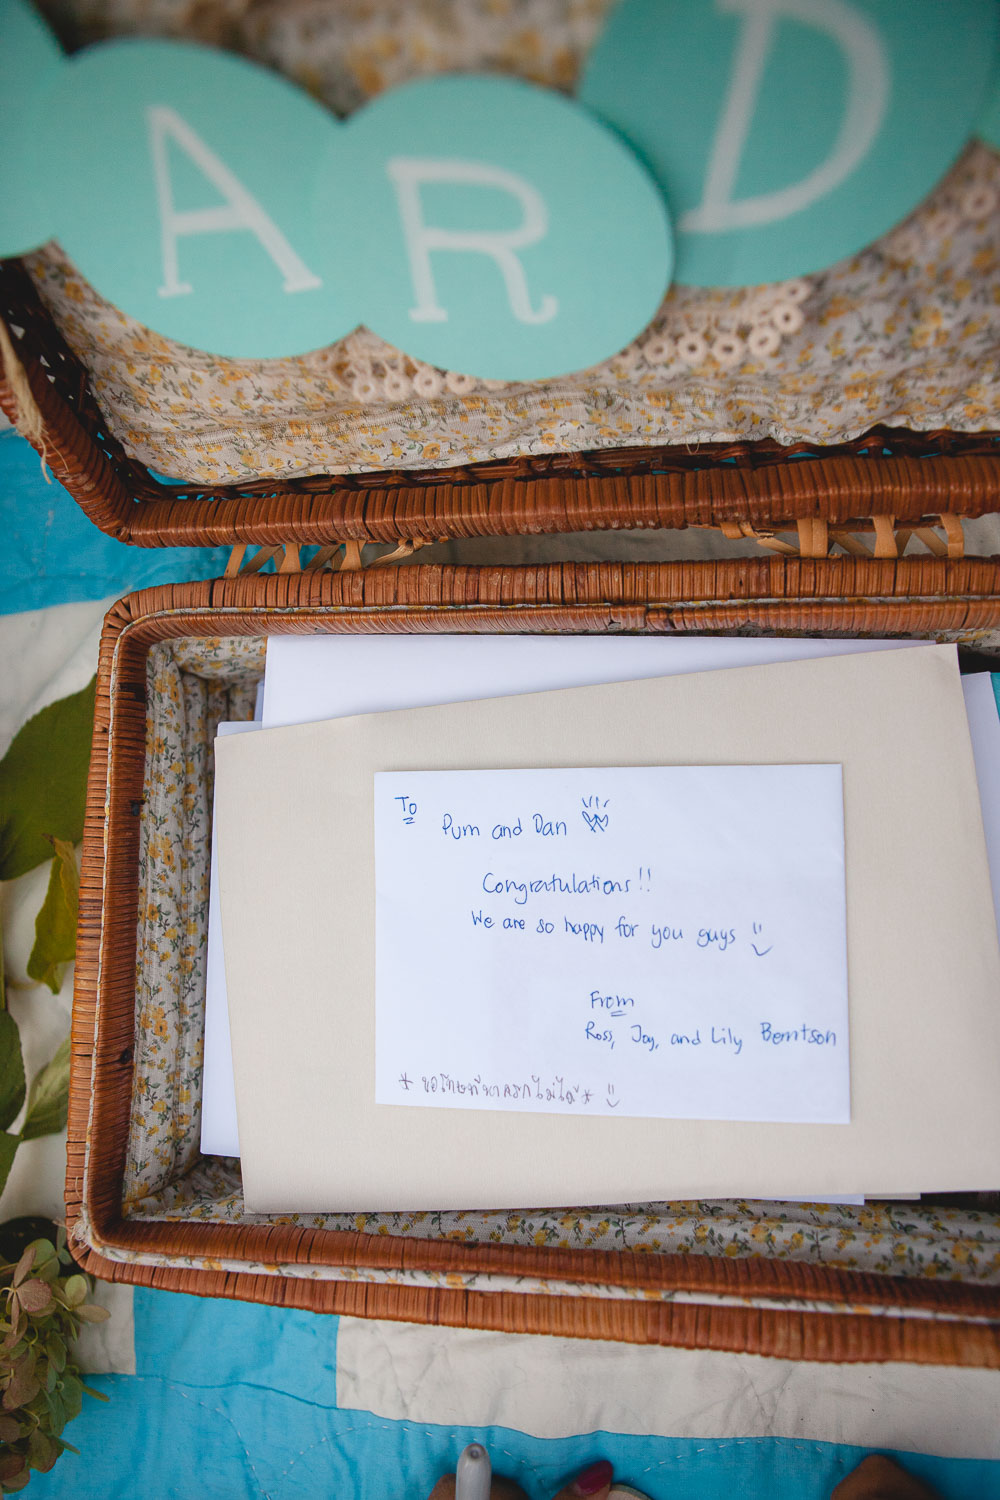 A R D
To
Pum and Dan
Congratulations!!
We are so happy for you guys
From
Ross, Joy, and Lily Berntson
* ขอโทษที่หาครกไม่ได้ *